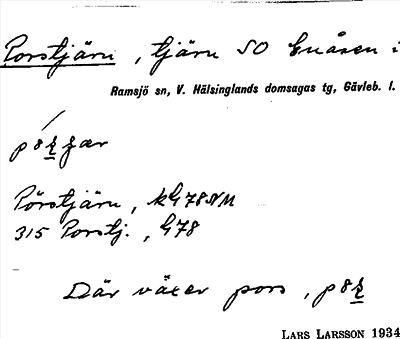 Porstjärn, tjärn SO Enåsen i
Ramsjö sn, V. Hälsinglands domsagas tg, Gävleb. l.
Pörstjärn, kG78NM
315 Porstj., G78
Där växer pors, p8
LARS LARSSON 1934